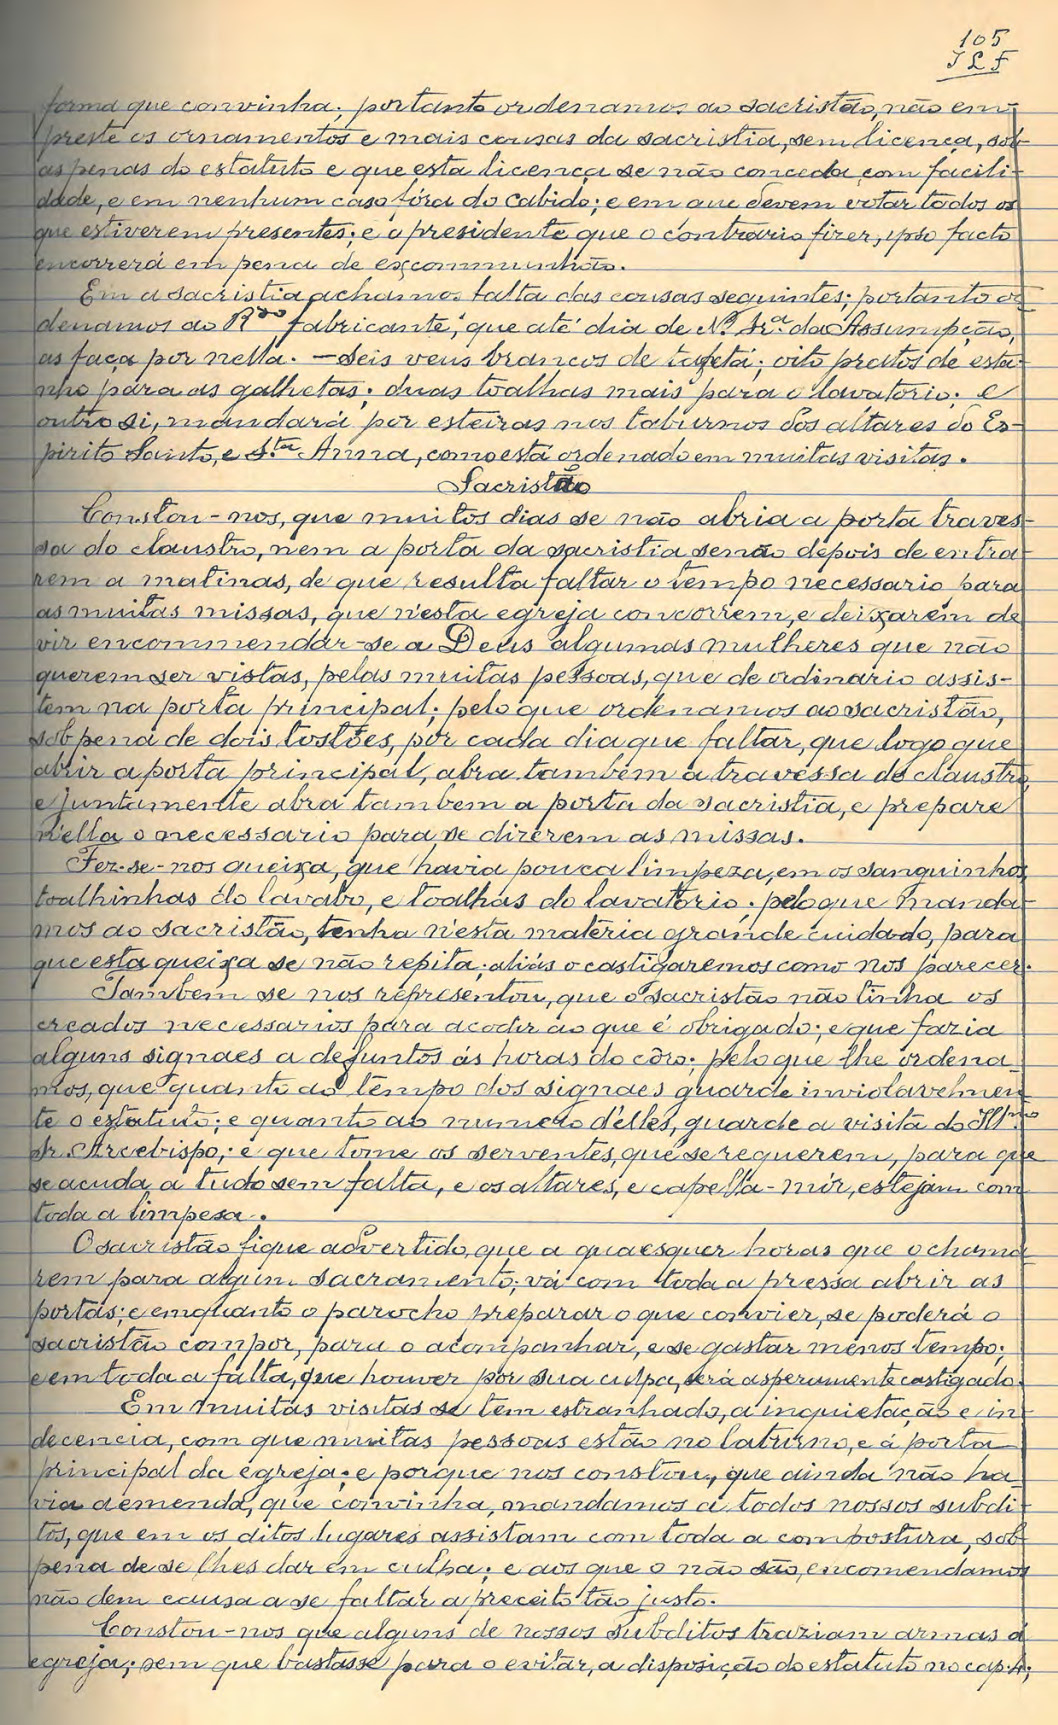 105
J L F
forma que convinha; portanto ordenamos ao sacristão, não em-
preste os ornamentos e mais cousas da sacristia, sem licença, sob
as penas do estatuto e que esta licença se não conceda com facili-
dade, e em nenhum caso fóra do Cabido; e em que devem votar todos os
que estiverem presentes; e o presidente que o contrario fizer, ipso facto
encorrerá em pena de excommunhão.
Em a sacristia achamos falta das cousas seguintes; portanto or
denamos ao Rdo fabricante, que até dia de N. Sra. da Assumpção,
as faça por nella. — Seis veus brancos de tafetá; oito pratos de esta-
nho para as galhetas; duas toalhas mais para o lavatorio; e
outro si, mandará por esteiras nos taburnos dos altares do Es-
pirito Santo, e Sta Anna, como está ordenado em muitas visitas.
Sacristão
Constou-nos, que muitos dias se não abria a porta traves-
sa do claustro, nem a porta da sacristia senão depois de entra-
rem a matinas, de que resulta faltar o tempo necessario para
as muitas missas, que n'esta egreja concorrem, e deixarem de
vir encommendar-se a Deus algumas mulheres que não
querem ser vistas, pelas muitas pessoas, que de ordinario assis-
tem na porta principal; pelo que ordenamos ao sacristão,
sob pena de dois tostões, por cada dia que faltar, que logo que
abrir a porta principal, abra tambem a travessa do claustro,
e juntamente abra tambem a porta da sacristia, e prepare
n'ella o necessario para se dizerem as missas.
Fez-se-nos queixa, que havia pouca limpeza, em os sanguinhos,
toalhinhas do lavabo, e toalhas do lavatorio; pelo que manda-
mos ao sacristão, tenha n'esta materia grande cuidado, para
que esta queixa se não repita; aliás o castigaremos como nos parecer.
Tambem se nos representou, que o sacristão não tinha os
creados necessarios para acodir ao que é obrigado; e que fazia
alguns signaes a defuntos ás horas do côro; pelo que lhe ordena-
mos, que quanto ao tempo dos signaes guarde inviolavelmen-
te o estatuto; e quanto ao numero d'elles, guarde a visita do Illmo
Sr. Arcebispo; e que tome os serventes, que se requerem, para que
se acuda a tudo sem falta, e os altares, e capella-mór, estejam com
toda a limpesa.
O sacristão fique advertido, que a quaesquer horas que o chama-
rem para algum sacramento; vá com toda a pressa abrir as
portas; e emquanto o parocho preparar o que convier, se poderá o
sacristão compor, para o acompanhar, e se gastar menos tempo;
e em toda a falta, que houver por sua culpa, será asperamente castigado.
Em muitas visitas se tem estranhado, a inquietação e in-
decencia, com que muitas pessoas estão no taburno, e á porta
principal da egreja; e porque nos constou, que ainda não ha-
via a emenda, que convinha, mandamos a todos nossos subdi-
tos, que em os ditos lugares assistam com toda a compostura, sob
pena de se lhes dar em culpa; e aos que o não são, encomendamos
não dem causa a se faltar a preceito tão justo.
Constou-nos que alguns de nossos subditos traziam armas á
egreja; sem que bastasse para o evitar, a disposição do estatuto no cap. 4;